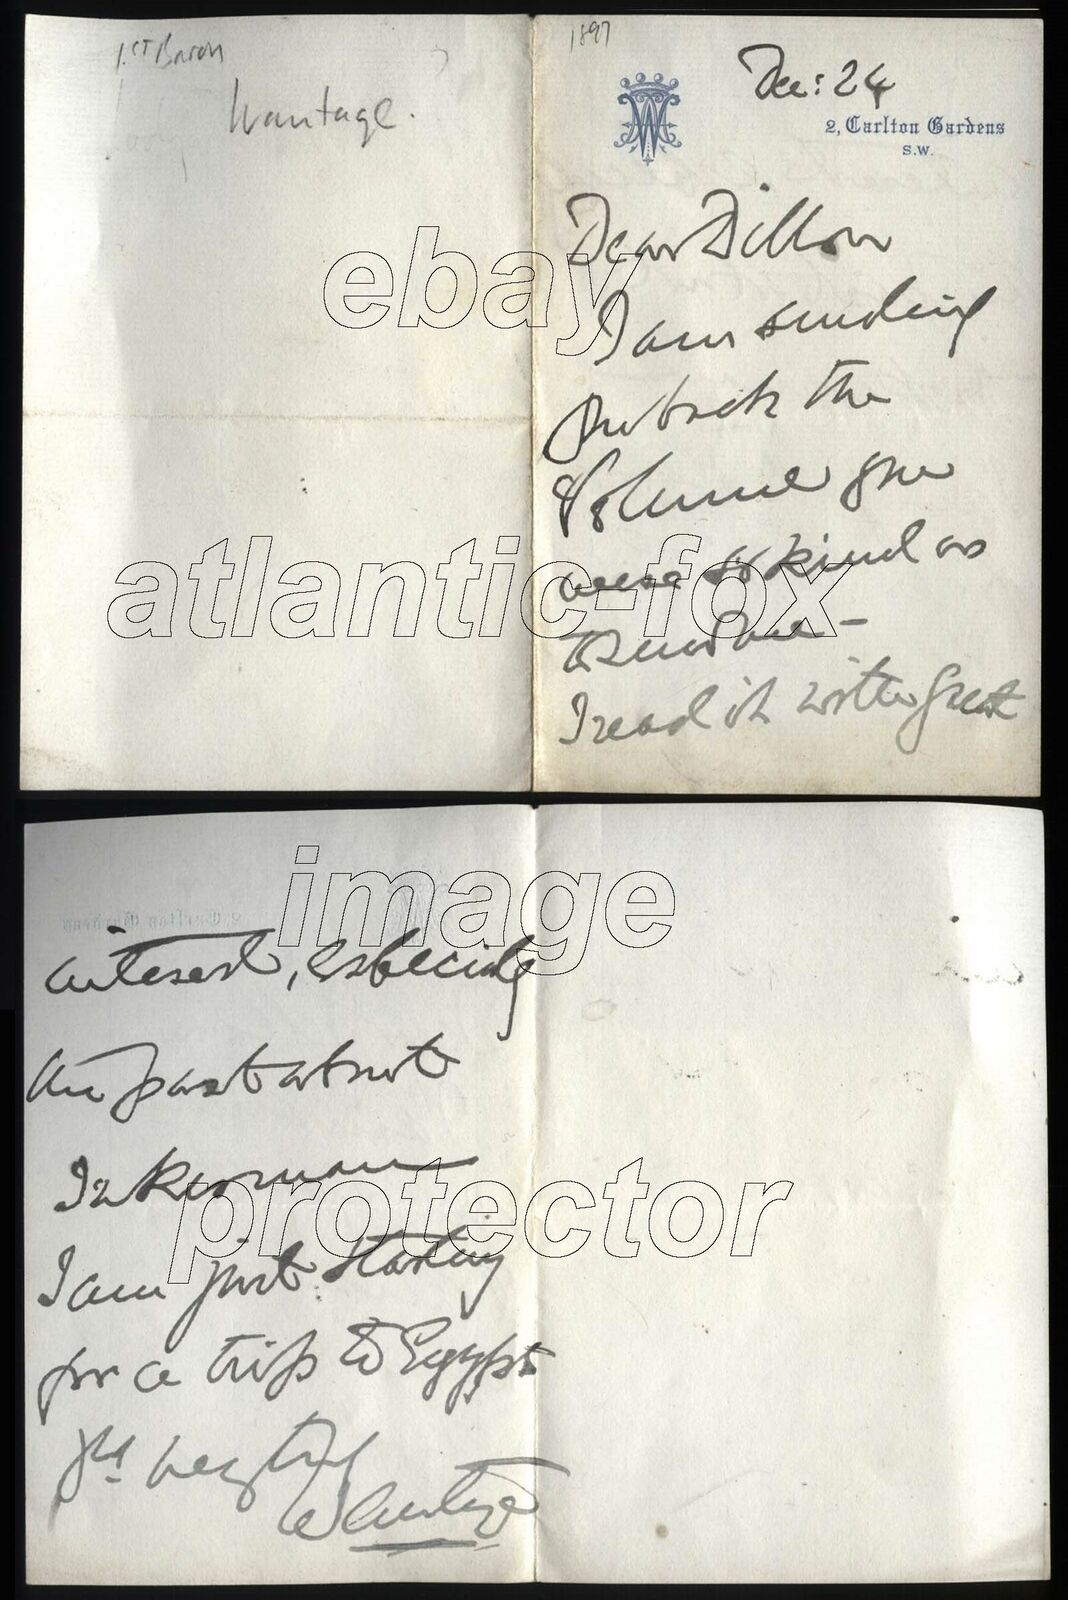 1st Baron
Wantage.
1897
Dec: 24
2, Carlton Gardens
S.W.
Dear Dillon
I am sending
you back the
Volume you
were so kind as
to send me –
I read it with great
interest, especially
the part about
Inkerman
I am just starting
for a trip to Egypt
Yrs very truly
Wantage
ebay
atlantic-fox
image
protector